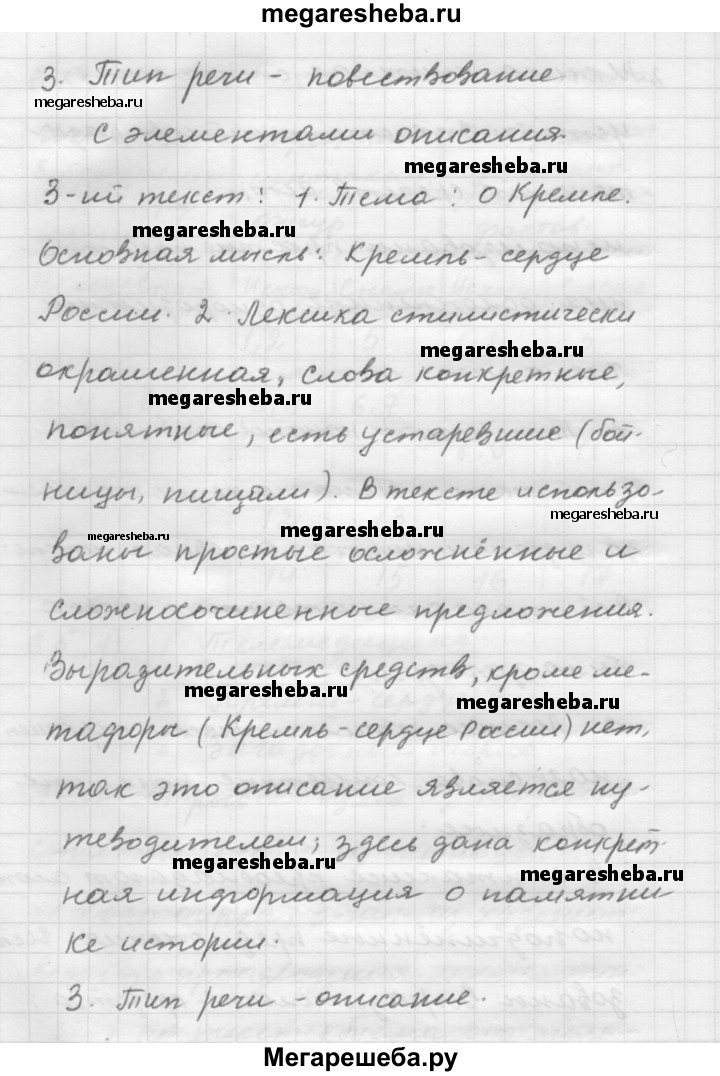 megaresheba.ru
3. Тип речи - повествование
megaresheba.ru
с элементами описания.
megaresheba.ru
3-ий текст: 1. Тема: О Кремле.
megaresheba.ru
Основная мысль: Кремль - сердце
России. 2. Лексика стилистически
megaresheba.ru
окрашенная, слова конкретные,
megaresheba.ru
понятные, есть устаревшие (бой-
ницы, пищали). В тексте использо-
megaresheba.ru
megaresheba.ru
megaresheba.ru
ваны простые осложнённые и
сложносочиненные предложения.
Выразительных средств, кроме ме-
megaresheba.ru
megaresheba.ru
тафоры (Кремль - сердце России) нет,
так это описание является пу-
теводителем; здесь дана конкрет
megaresheba.ru
megaresheba.ru
ная информация о памятни
ке истории.
3. Тип речи - описание.
Мегарешеба.ру